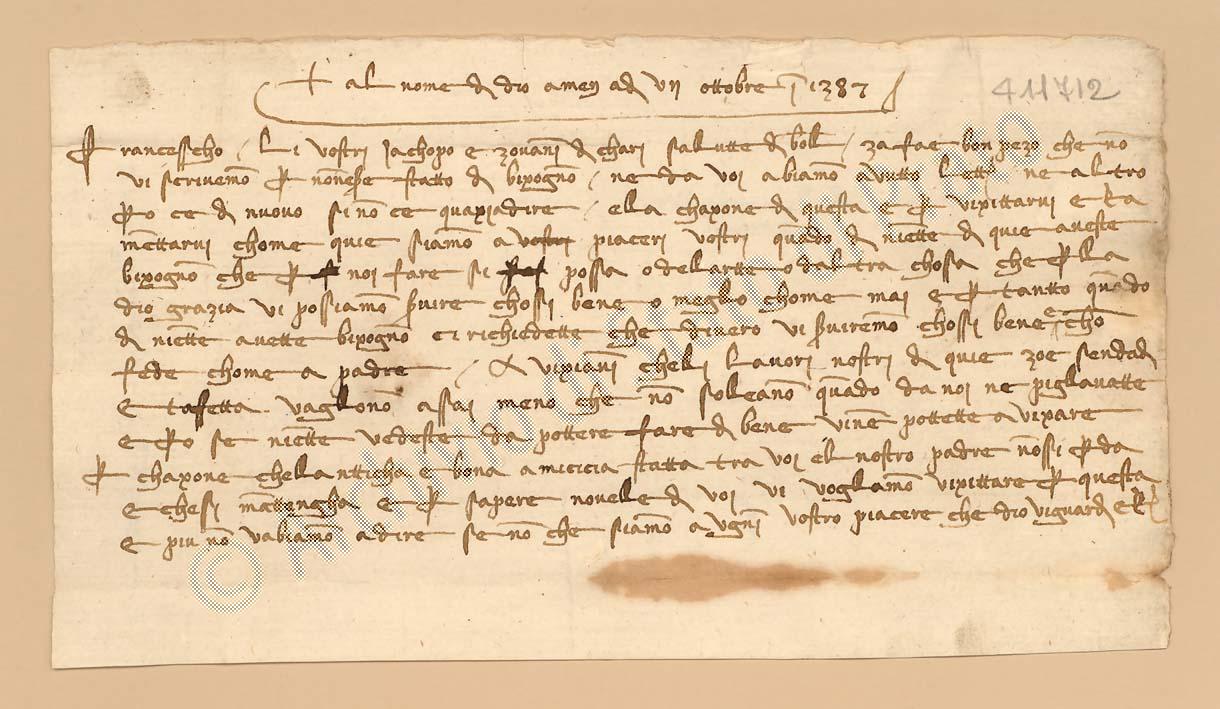 + al nome di dio amen adi vii ottobre 1387
411712
Francesscho, li vostri Jachopo e zovani di chari salutte di bolla, za fae bon pezo che nō
vi scrivemō p nonese statto di bixognō, ne da voi abiamō avutto letta ne altro
pō ce di nuovo si nō ce quaxiadire, e lla chaxone di questa e p vixittarvi e ra
mēttarvi chome quie siamō a vostri piaceri vostri quādo di niētte di quie aveste
bixognō che p noi fare si possa o delartte o daltra chossa che p lla
dio grazia vi possiamō servire chossi bene o meglio chome mai e p tantto quādo
di niētte avette bixognō ci richiedette che divero vi serviremō chossi bene e chō
fede chome a padre, & vixiani cheli lavori nostri di quie zoe sendadi
e tafetta vaglionō assai meno che nō soleanō quādo da noi ne piglavatte
e pō se niētte vedeste da pottere fare di bene vine pottette avixare
p chaxone chellantticha e bona amicicia statta tra voi el nostro padre nōssi pda
e chesi mātengha e p sapere novelle di voi vi voglamō vixittare p questa
e piu nō vabiamō a dire se nō che siamō a vgni vostro piacere che dio viguardi
© Archivio di Stato Prato